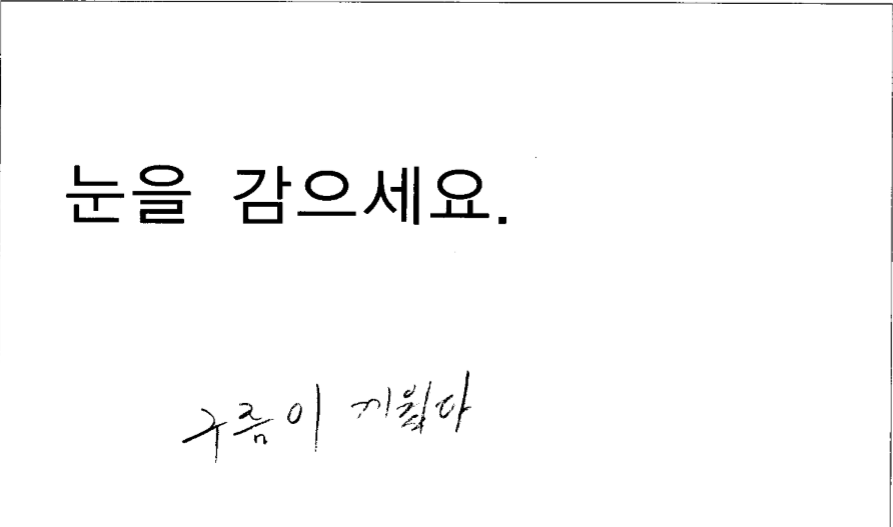 눈을 감으세요.
구름이 끼웠다